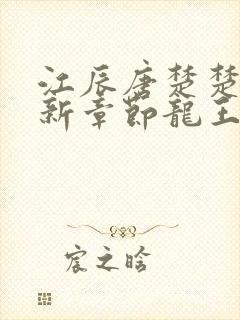 江辰唐楚楚
新章節龍王
宸之晗